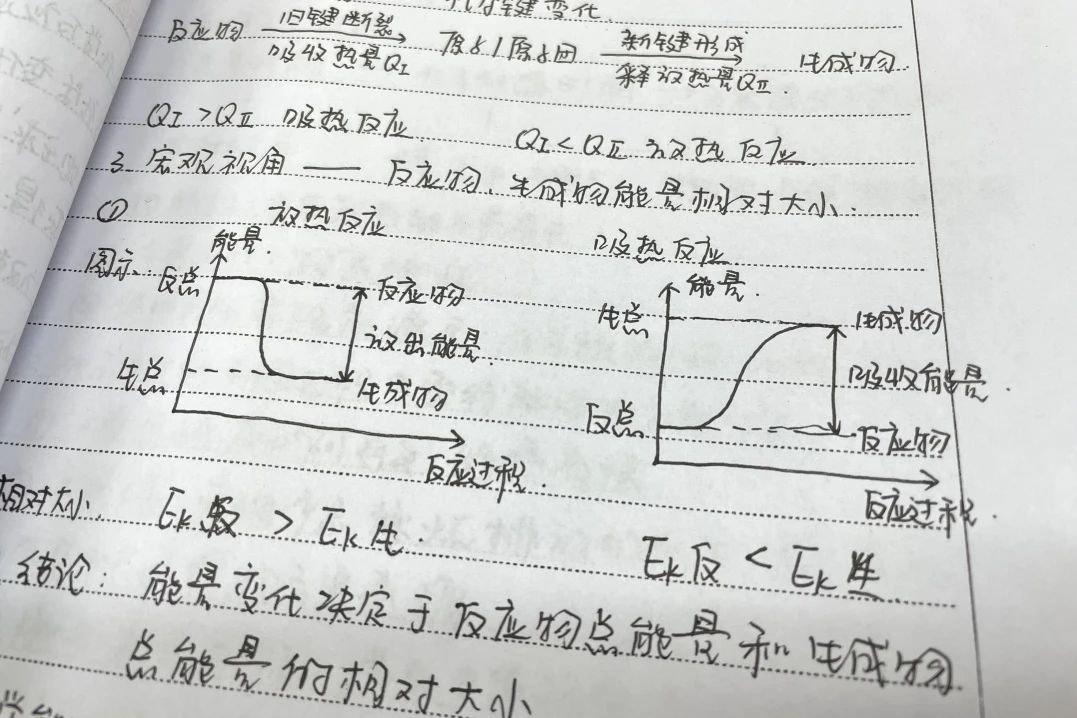 键变化.
反应物 旧键断裂 吸收热量QⅠ 原子/原子团 新键形成 释放热量QⅡ. 生成物.
QⅠ>QⅡ 吸热反应 QⅠ<QⅡ 放热反应.
3. 宏观视角 —— 反应物、生成物能量相对大小.
① 放热反应 吸热反应
图示. 能量. 能量.
反总 反应物 生总 生成物
放出能量 吸收能量.
生总 生成物 反总 反应物
反应过程. 反应过程.
相对大小. Ek反 > Ek生. Ek反 < Ek生
结论: 能量变化决定于反应物总能量和生成物
总能量的相对大小